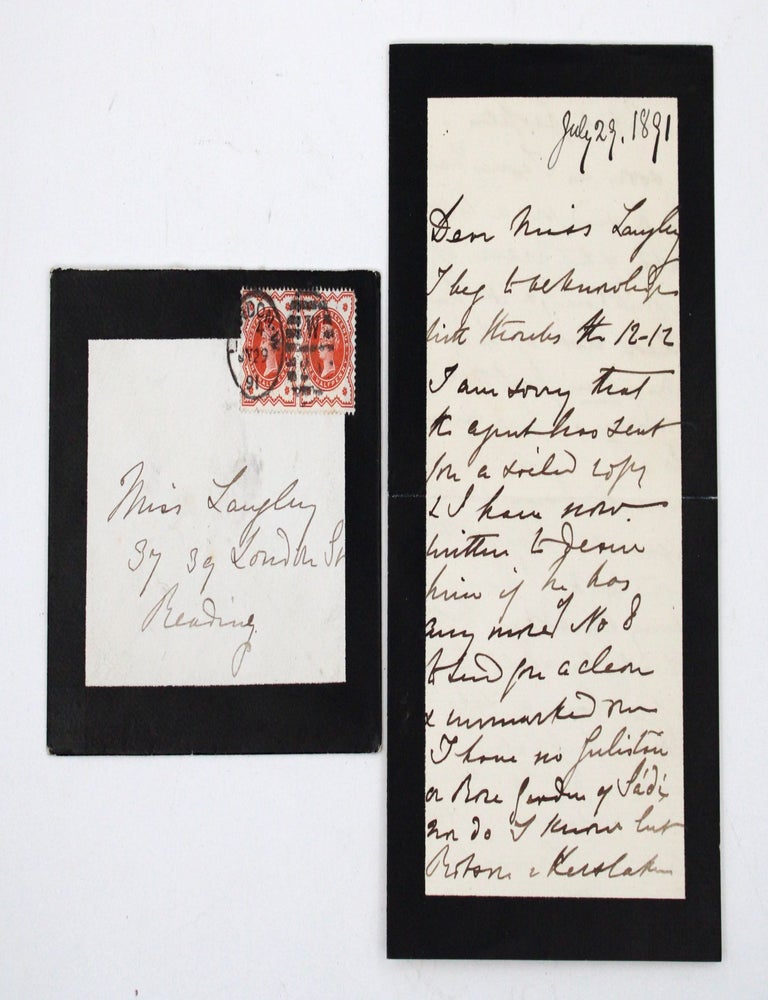 July 29. 1891
Dear Miss Langley
I beg to acknowledge
with thanks the 12-12
I am sorry that
the agent has sent
you a soiled copy
& I have now
written to desire
him if he has
any more of No 8
to send you a clean
& unmarked one
I have no Gulistan
or Rose Garden of Sádi
nor do I know but
Robson & Kerslake
JY 29
91
W
Miss Langley
37 39 London St
Reading